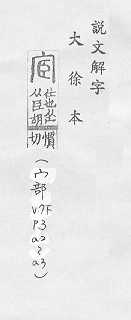 說文解字
大徐本
宦
仕也从宀
从臣胡
慣
切
(宀部
V7下
P3
a2
~
a3)